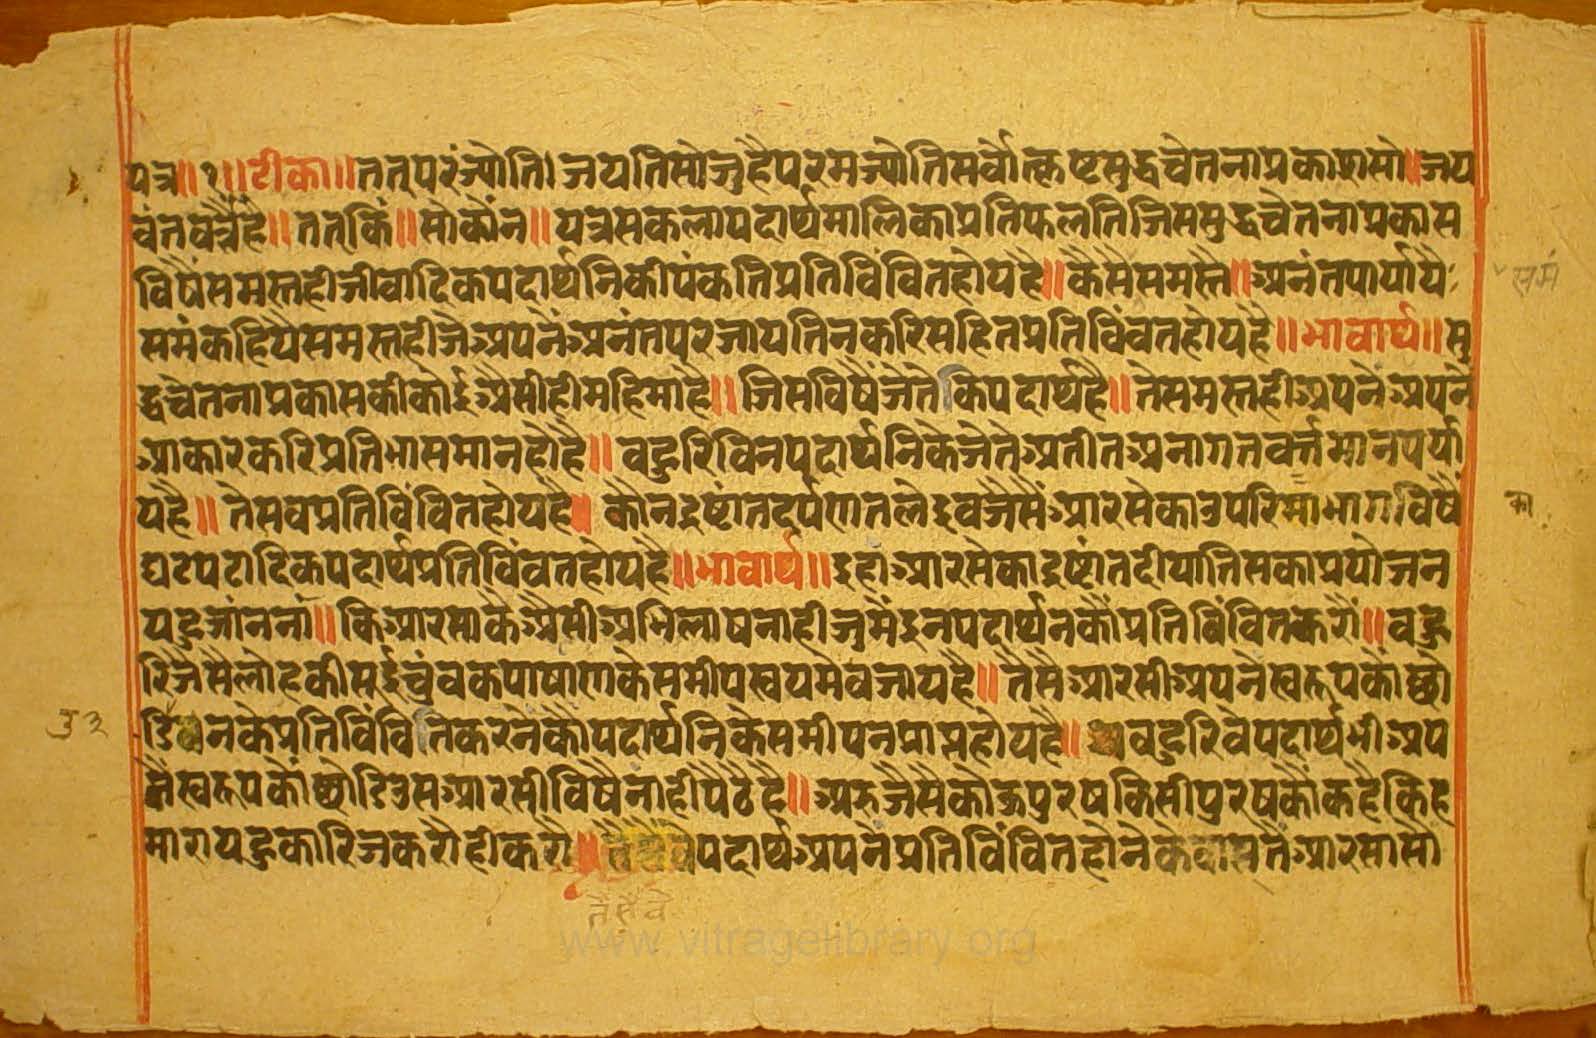 यत्र॥१॥टीका॥तत्परंज्योति।जयतिसोजुहैपरमज्योतिसर्वोत्कृष्टसुद्धचेतनाप्रकाशसो॥जय
वंतवर्त्तैहै॥तत्किं॥सोकौंन॥यत्रसकलापदार्थमालिकाप्रतिफलतिजिससुद्धचेतनाप्रकास
विषैंसमस्तहीजीवादिकपदार्थनिकीपंकतिप्रतिविंवितहोयहै॥कैसैसमस्तै॥अनंतपार्यायैः
समंकहियैसमस्तहीजेअपनैंअनंतपरजायतिनकरिसहितप्रतिविंवतहोयहै॥भावार्थ॥सु
द्धचेतनाप्रकासकीकोईअैसीहीमहिमाहै॥जिसविषैंजेतेकिपदार्थहै॥तेसमस्तहीअपनेअपने
आकारकरिप्रतिभासमानहोहै॥वहुरिविनपदार्थनिकेजेतेअतीतअनागतवर्त्तमानपर्या
यहै॥तेसवप्रतिविंवितहोयहै॥कौनद्रष्टांतदर्पणतलेइवजैसैंआरसेकाउपरिमाभागविषैं
घटपटादिकपदार्थप्रतिविंवतहोयहै॥भावार्थ॥इहांआरसेकाद्रष्टांतदीयातिसकाप्रयोजन
यहुजांननां॥किआरसाकैअैसीअभिलाषनाहीजुमैंइनपदार्थनकौंप्रतिविंवितकरौं॥वहु
रिजैसैलोहकीसूईचुंवकपाषाणकेसमीपस्वयमेवजायहै॥तैसैआरसीअपनेस्वरूपकोंछो
डिवनकेप्रतिविंवितिकरनेकौपदार्थनिकेसमीपनप्राप्तहोयहै॥वहुरिवेपदार्थभीअप
नैंस्वरूपकोंछोडिउसआरसीविषैनांहीपैठेहै॥अरुजैसैकोऊपुरषकिसीपुरषकौंकहैकिह
मारायहुकारिजकरौहीकरो॥तैसैवेपदार्थअपनेप्रतिविंवितहोनेकेवास्तेंआरसासो
तैसैवे
समं
का
www.vitragelibrary.org